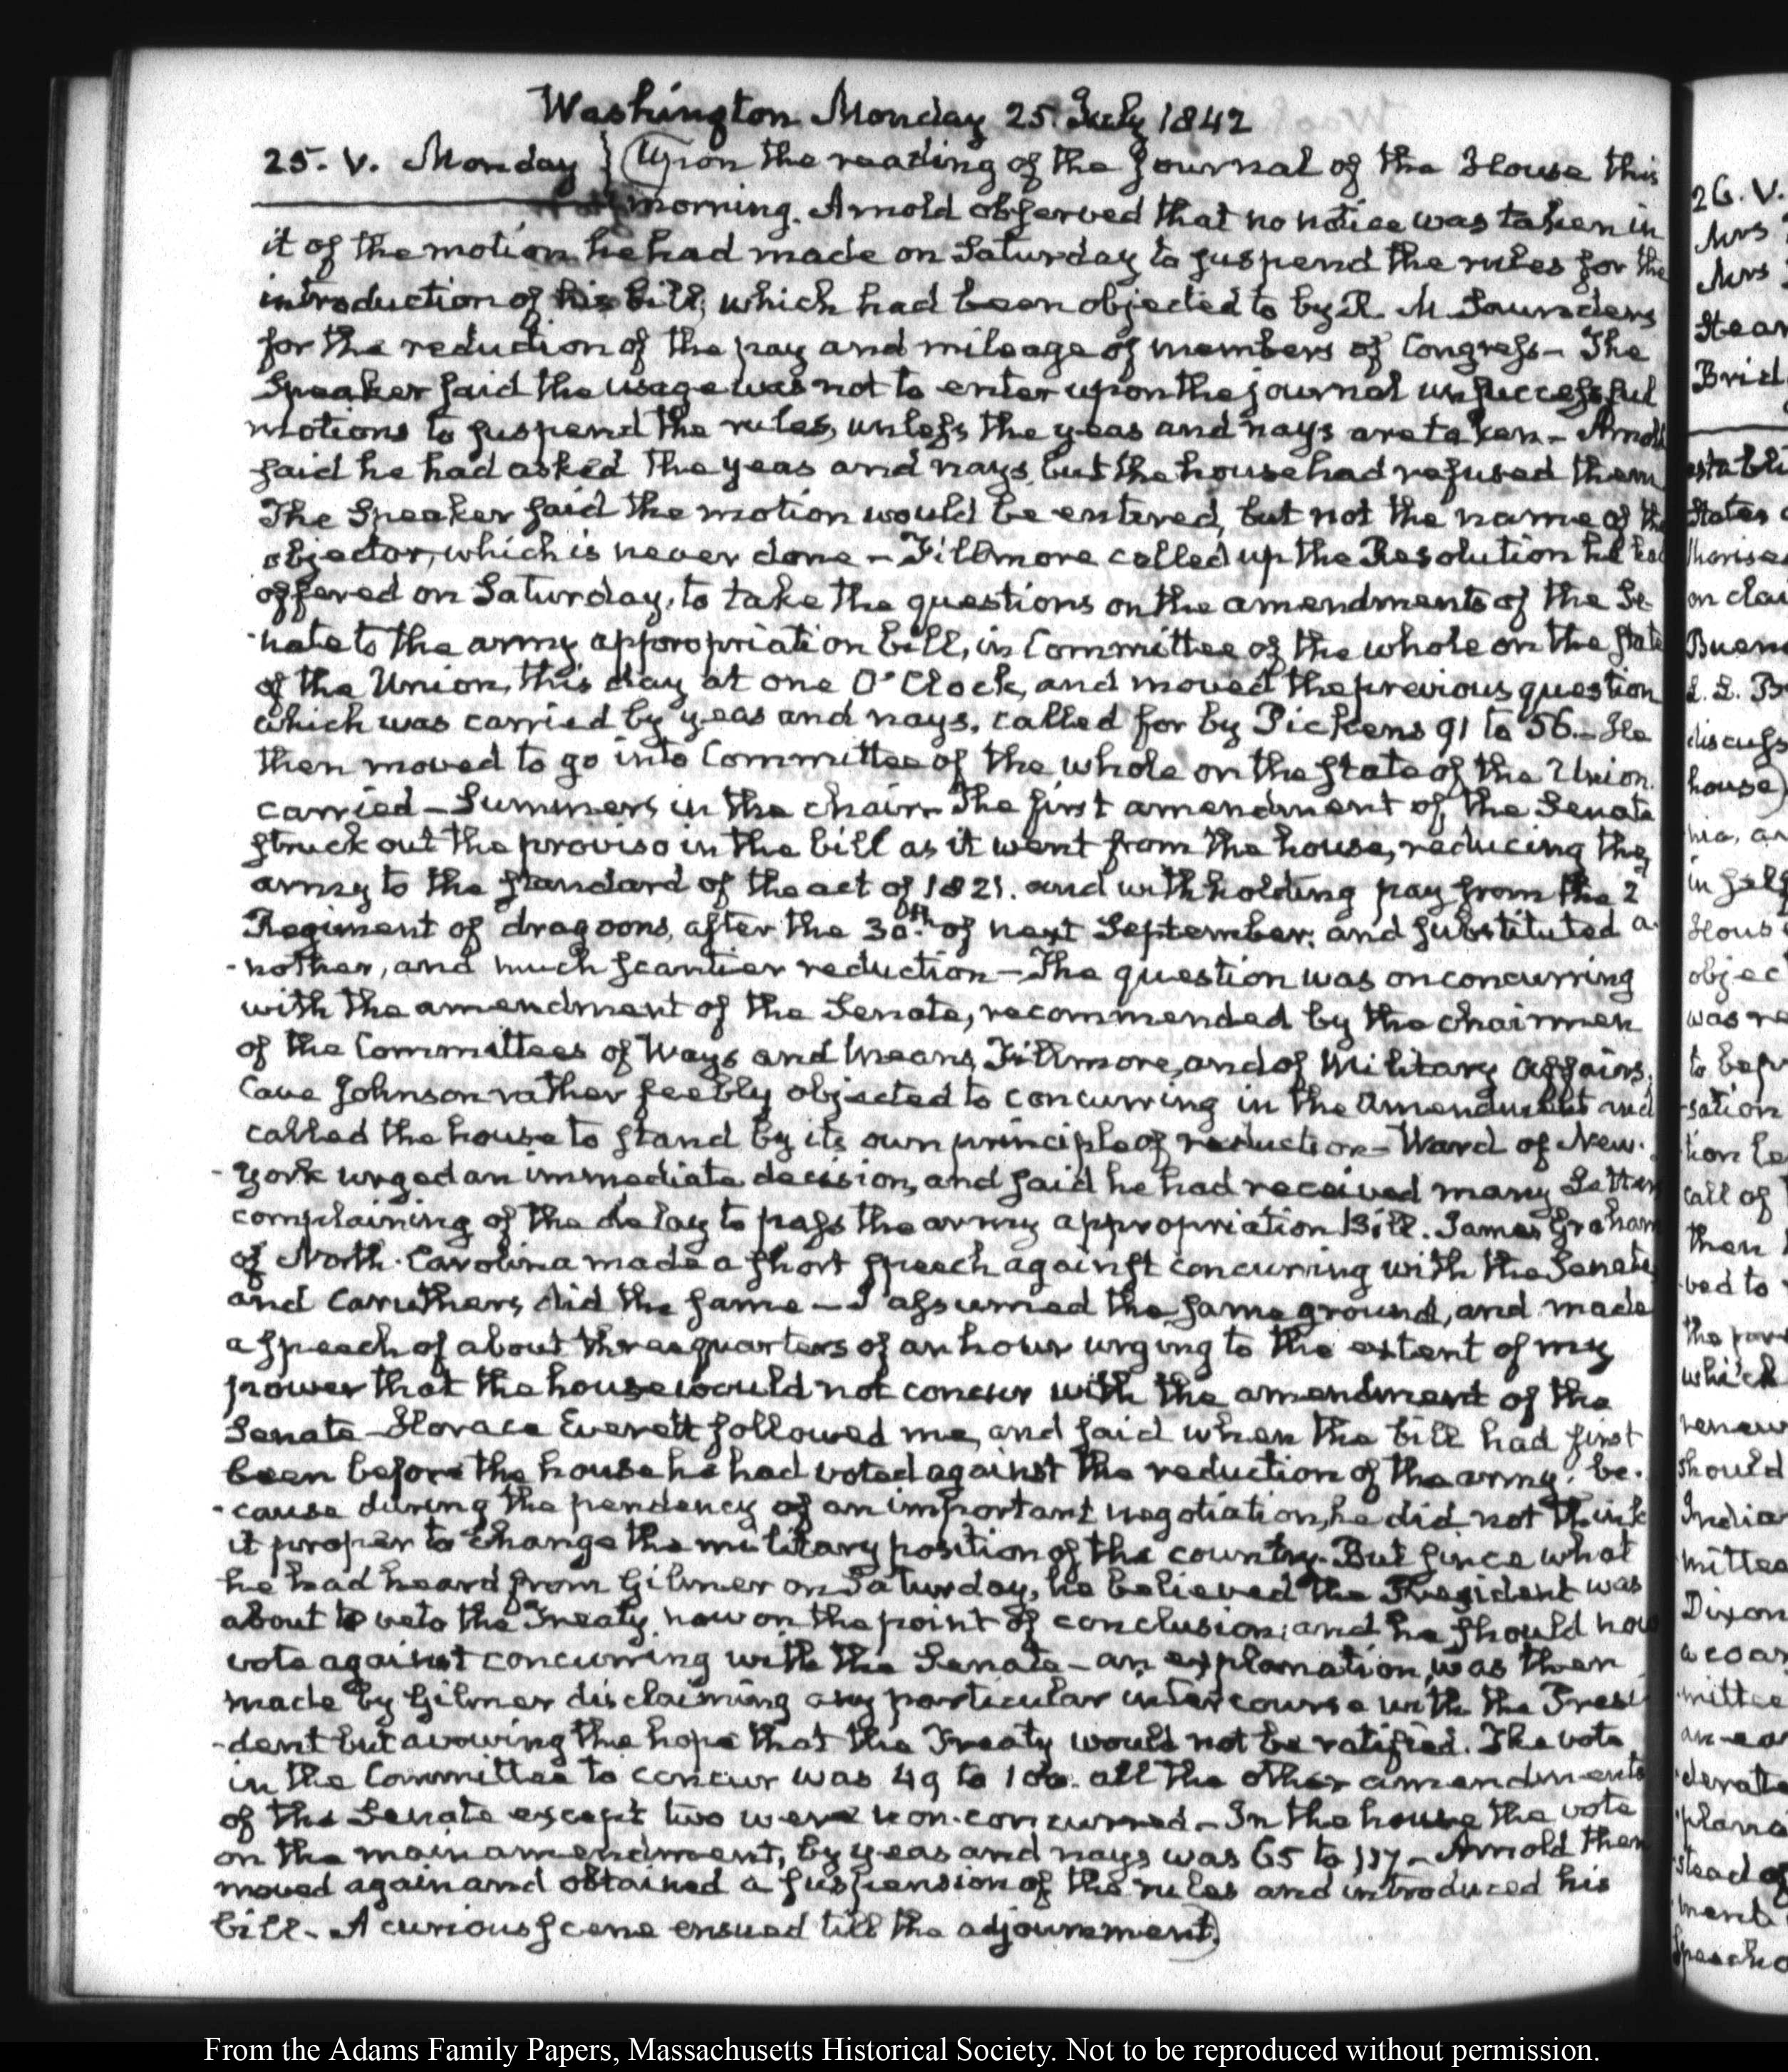 Washington Monday 25. July 1842
25. V. Monday } (Upon the reading of the Journal of the House this
morning. Arnold observed that no notice was taken in
it of the motion he had made on Saturday to suspend the rules for the
introduction of his bill, which had been objected to by R. M Saunders
for the reduction of the pay and mileage of members of Congress— The
Speaker said the usage was not to enter upon the journal unsuccessful
motions to suspend the rules, unless the yeas and nays are taken— Arnold
said he had asked the yeas and nays, but the house had refused them
The Speaker said the motion would be entered, but not the name of the
objector, which is never done— Fillmore called up the Resolution he had
offered on Saturday, to take the questions on the amendments of the Se-
-nate to the army appropriation bill, in Committee of the whole on the state
of the Union, this day at one O'Clock, and moved the previous question
which was carried by yeas and nays, called for by Pickens 91 to 56.— He
then moved to go into Committee of the whole on the state of the Union.
carried— Summers in the chair— The first amendment of the Senate
struck out the proviso in the bill as it went from the house, reducing the
army to the standard of the act of 1821. and withholding pay from the 2d
Regiment of dragoons, after the 30th of next September; and substituted a-
-nother, and much scantier reduction— The question was on concurring
with the amendment of the Senate, recommended by the chairmen
of the Committees of Ways and Means, Fillmore, and of Military Affairs.
Cave Johnson rather feebly objected to concurring in the amendment and
called the house to stand by its own principle of reduction— Ward of New-
-York urged an immediate decision, and said he had received many Letters
complaining of the delay to pass the army appropriation Bill. James Graham
of North-Carolina made a short speech against concurring with the Senate
and Caruthers, did the same— I assumed the same ground, and made
a speech of about three quarters of an hour urging to the extent of my
power that the house would not concur with the amendment of the
Senate— Horace Everett followed me, and said when the bill had first
been before the house he had voted against the reduction of the army; be-
-cause during the pendency of an important negotiation, he did not think
it proper to change the military position of the country. But since what
he had heard from Gilmer on Saturday, he believed the President was
about to veto the Treaty now on the point of conclusion; and he should now
vote against concurring with the Senate— an explanation was then
made by Gilmer disclaiming any particular intercourse with the Presi-
-dent but avowing the hope that the Treaty would not be ratified. The vote
in the Committee to concur was 49 to 100. all the other amendments
of the Senate except two were non-concurred— In the house the vote
on the main amendment, by yeas and nays was 65 to 117— Arnold then
moved again and obtained a suspension of the rules and introduced his
bill— A curious scene ensued till the adjournment.)
26. V.
Mrs
Mrs
Brid
establi
States
on clau
Buen
discuss
house)
in self
House
objec
was re
-sation
tion
call of
then
ved to
the
which
renew
should
India
mittee
Dixon
mittee
-stead of
ment
From the Adams Family Papers, Massachusetts Historical Society. Not to be reproduced without permission.